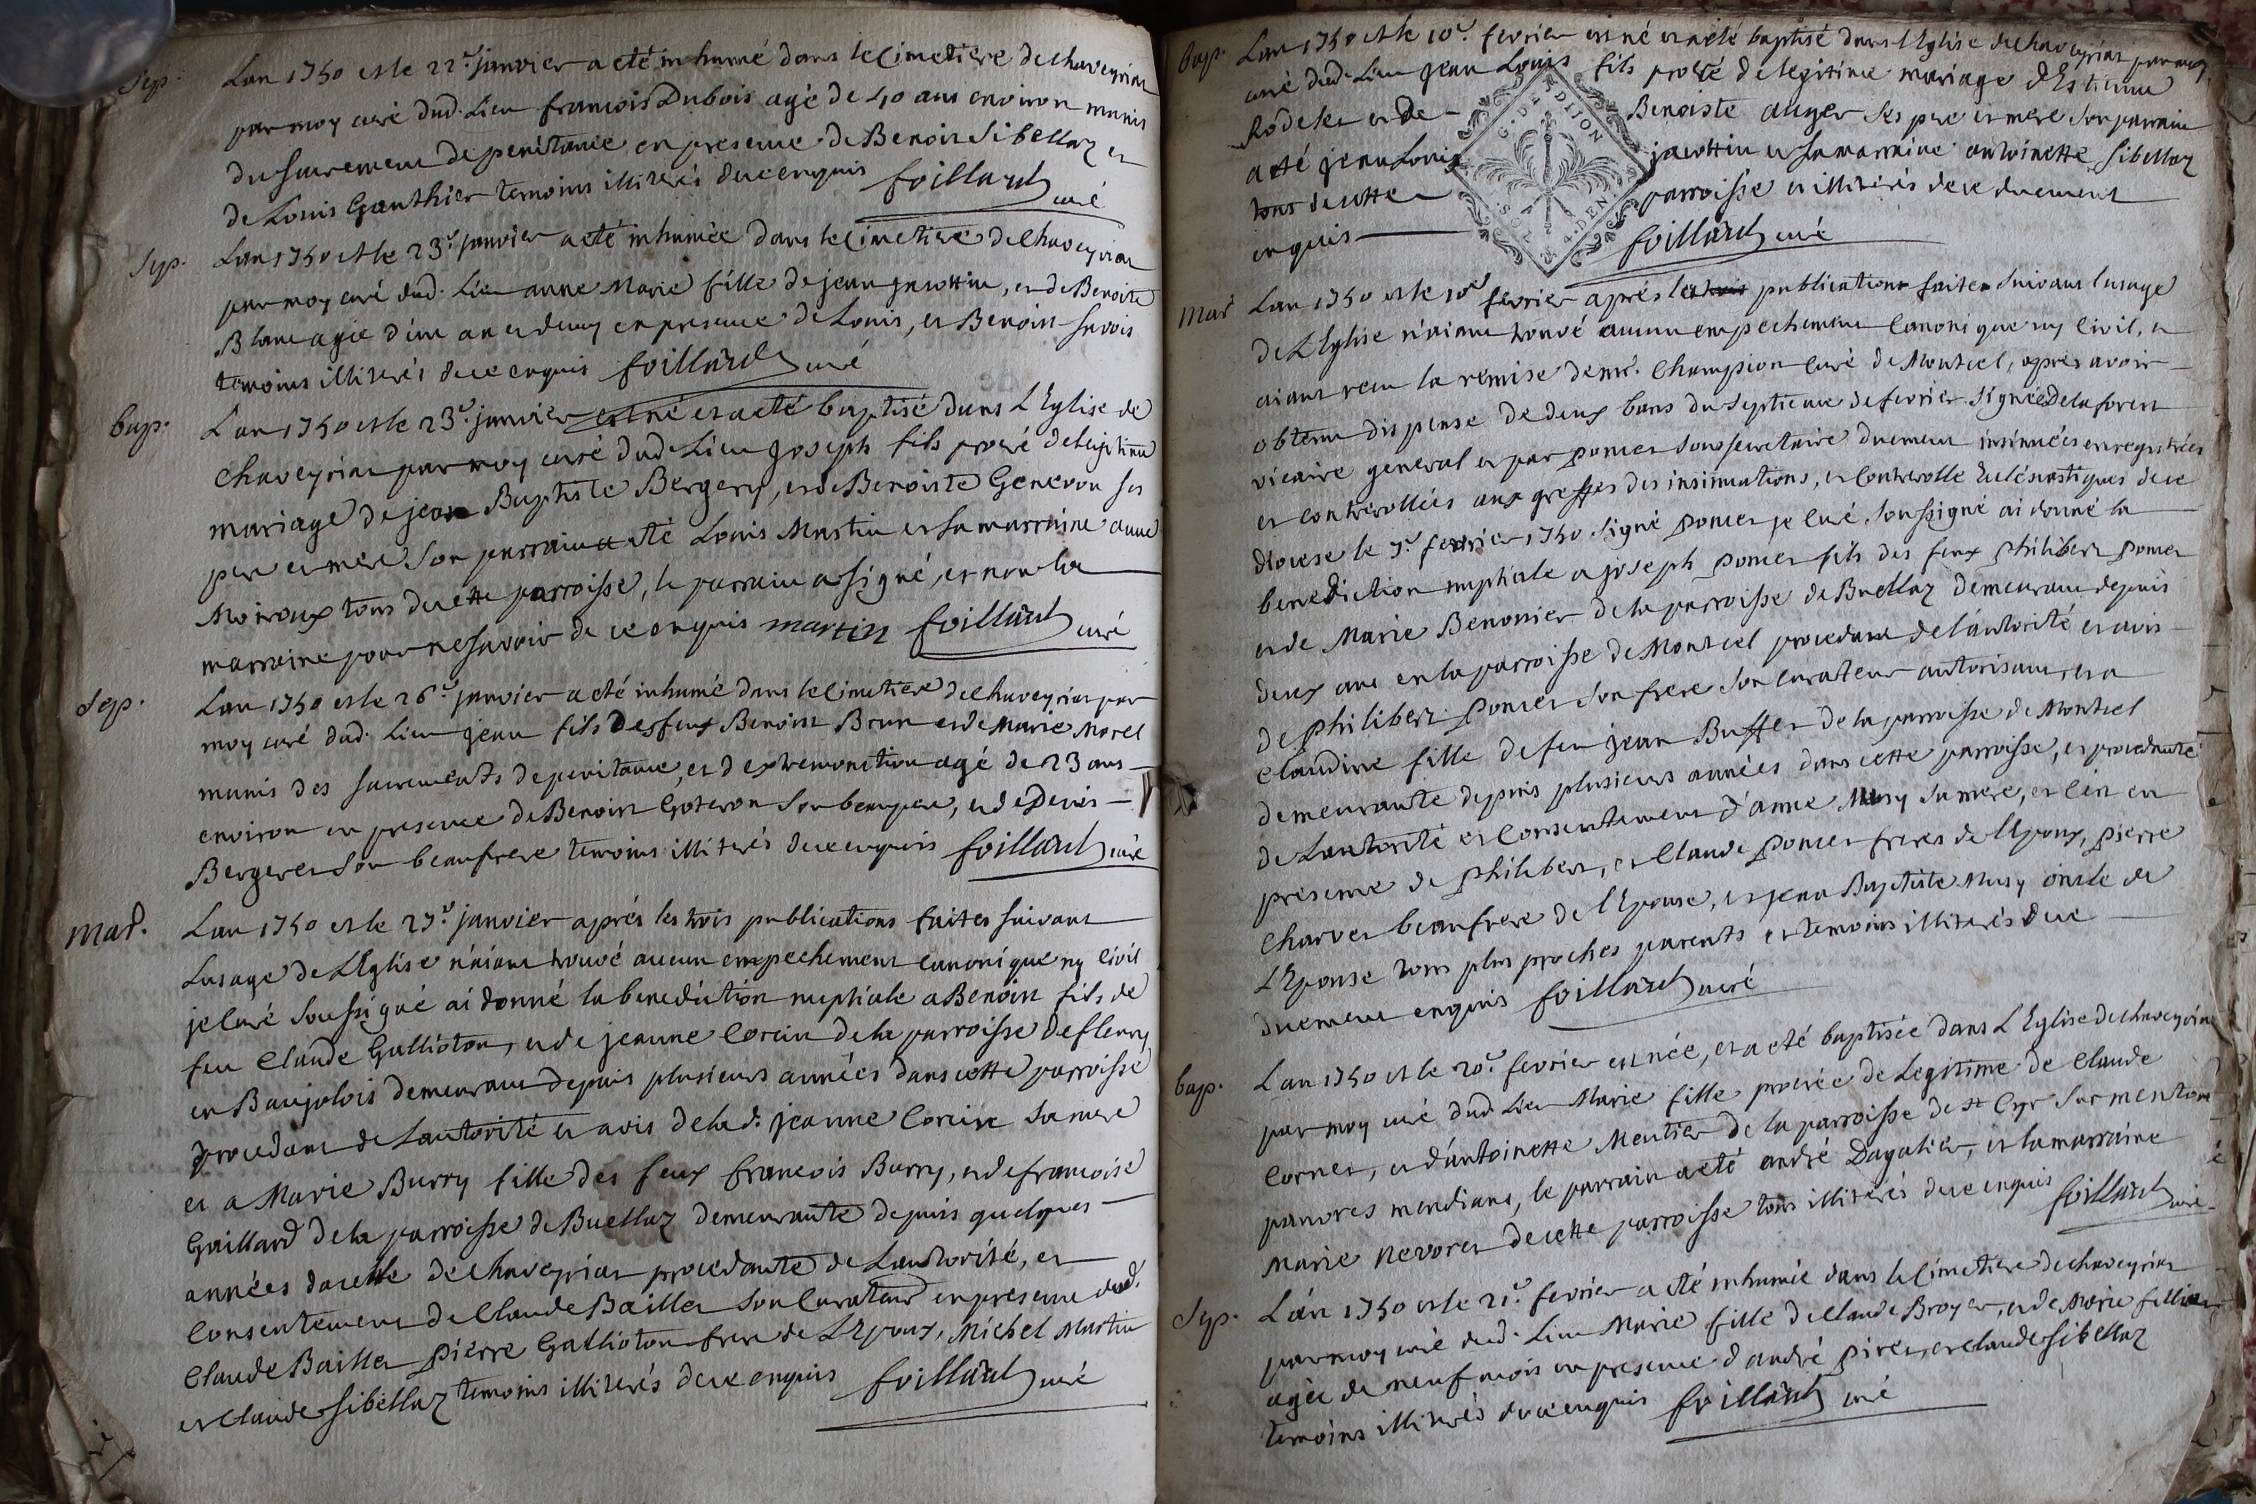 Sep. L'an 1750 et le 22e janvier a eté inhumé dans le Cimetiere de chaveyriat
par moy curé dud. Lieu francois Dubois agé de 40 ans environ munis
du sacrement de penitance en presence de Benoit Sibellaz et
de Louis Gauthier temoins illiterés de ce enquis foillard curé
Sep. L'an 1750 et le 23e janvier a eté inhumée dans le Cimetiere de Chaveyriat
par moy curé dud. Lieu anne Marie fille de jean jacottin, et de Benoite
Blanc agée d'un an et demy en presence de Louis, et Benoit Savois
temoins illiterés de ce enquis foillard curé
bap. L'an 1750 et le 23e janvier est né et a eté baptisé dans L'Eglise de
chaveyriat par moy curé dud. Lieu joseph fils procré de legitime
mariage de jean Baptiste Bergery, et de Benoiste Genevon ses
pere et mere son parrain a eté Louis Martin et sa marraine anne
Moiroux tous de cette parroisse, le parrain a signé, et non la
marraine pour ne savoir de ce enquis martin foillard curé
Sep. L'an 1750 et le 26e janvier a eté inhumé dans le Cimetiere de chaveyriat par
moy curé dud. Lieu jean fils des feux Benoist Brun et de Marie Morel
munis des sacrements de penitance, et d'extremonction agé de 23 ans
environ en presence de Benoist Goteron son beaupere, et de Denis
Bergeret son beaufrere temoins illiterés de ce enquis foillard curé
mar. L'an 1750 et le 27e janvier aprés les trois publications faites suivant
L'usage de L'Eglise n'aiant trouvé aucun empechement canonique ny Civil
je Curé soussigné ai donné la benediction nuptiale a Benoist fils de
feu Claude Gallioton, et de jeanne Corcin de la parroisse de fleury
en Baujolois demeurant depuis plusieurs années dans cette parroisse
procedant de L'autorité et avis de lad. jeanne Corcin sa mere
et a Marie Burry fille des feux francois Burry, et de francoise
Gaillard de la parroisse de Buellaz demeurante depuis quelques
années dans celle de chaveyriat procedante de L'autorité, et
Consentement de Claude Baillet son Curateur en presence dud.
Claude Baillet pierre Gallioton frere de L'Epoux, Michel Martin
et Claude Sibellaz temoins illiterés de ce enquis foillard curé
bap. L'an 1750 et le 10e fevrier est né et a eté baptisé dans L'Eglise de Chaveyriat par moy
curé dud. Lieu jean Louis fils procré de legitime mariage d'Estienne
Rodelet et de Benoiste auger ses pere et mere son parrain
a eté jean Louis jacottin et sa marraine antoinette Sibellaz
tous de cette parroisse et illiterés de ce duement
enquis foillard curé
G. D'ARDITION
SOLS 4. DEN
mar L'an 1750 et le 10e fevrier aprés la publication faite suivant l'usage
de L'Eglise n'aiant trouvé aucun empechement Canonique ny Civil, et
aiant receu la remise de mr. Champion Curé de Montcel, aprés avoir
obtenu dispense de deux bans du septieme de fevrier signée Delaforest
vicaire general et par poncet sous secretaire duement insinuées enregistrées
et controllées aux greffes des insinuations, et Controlle Eclesiastiques de ce
diocese le 7e fevrier 1750 signé poncet je Curé soussigné ai donné la
benediction nuptiale a joseph poncet fils des feux philibert poncet
et de Marie Benonier de la parroisse de Buellaz demeurant depuis
deux ans en la parroisse de Montcel procedant de l'autorité et avis
de philibert poncet son frere son curateur autorisant, et a
claudine fille de feu jean Buffet de la parroisse de Montcel
demeurante depuis plusieurs années dans cette parroisse, et procedante
de L'autorité et Consentement d'anne Musy sa mere, et c'en en
presence de philibert, et Claude poncet freres de l'Epoux, pierre
charvet beaufrere de l'Epouse, et jean Baptiste Musy oncle de
L'Epouse tous plus proches parents et temoins illiterés de ce
duement enquis foillard curé
bap. L'an 1750 et le 20e fevrier est née, et a eté baptisée dans L'Eglise de chaveyriat
par moy curé dud. Lieu Marie fille procrée de Legitime de Claude
Cornet, et d'antoinette Meutier de la parroisse de st Cyr sur menton
pauvres mendians, le parrain a eté andré Dagalier, et la marraine
Marie Nevoret de cette parroisse tous illiterés de ce enquis foillard curé
Sep. L'an 1750 et le 21e fevrier a eté inhumée dans le Cimetiere de chaveyriat
par moy curé dud. Lieu Marie fille de Claude Broyer, et de Marie fillion
agée de neuf mois en presence d'andré piret, et claude Sibellaz
temoins illiterés de ce enquis foillard curé